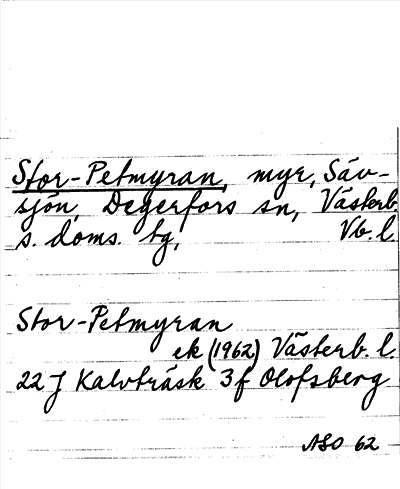 Stor-Petmyran, myr, Säv-
sjön, Degerfors sn, Västerb.
s. doms. tg, Vb. l.
Stor-Petmyran
ek (1962) Västerb. l.
22 J Kalvträsk 3 f Olofsberg
ASO 62